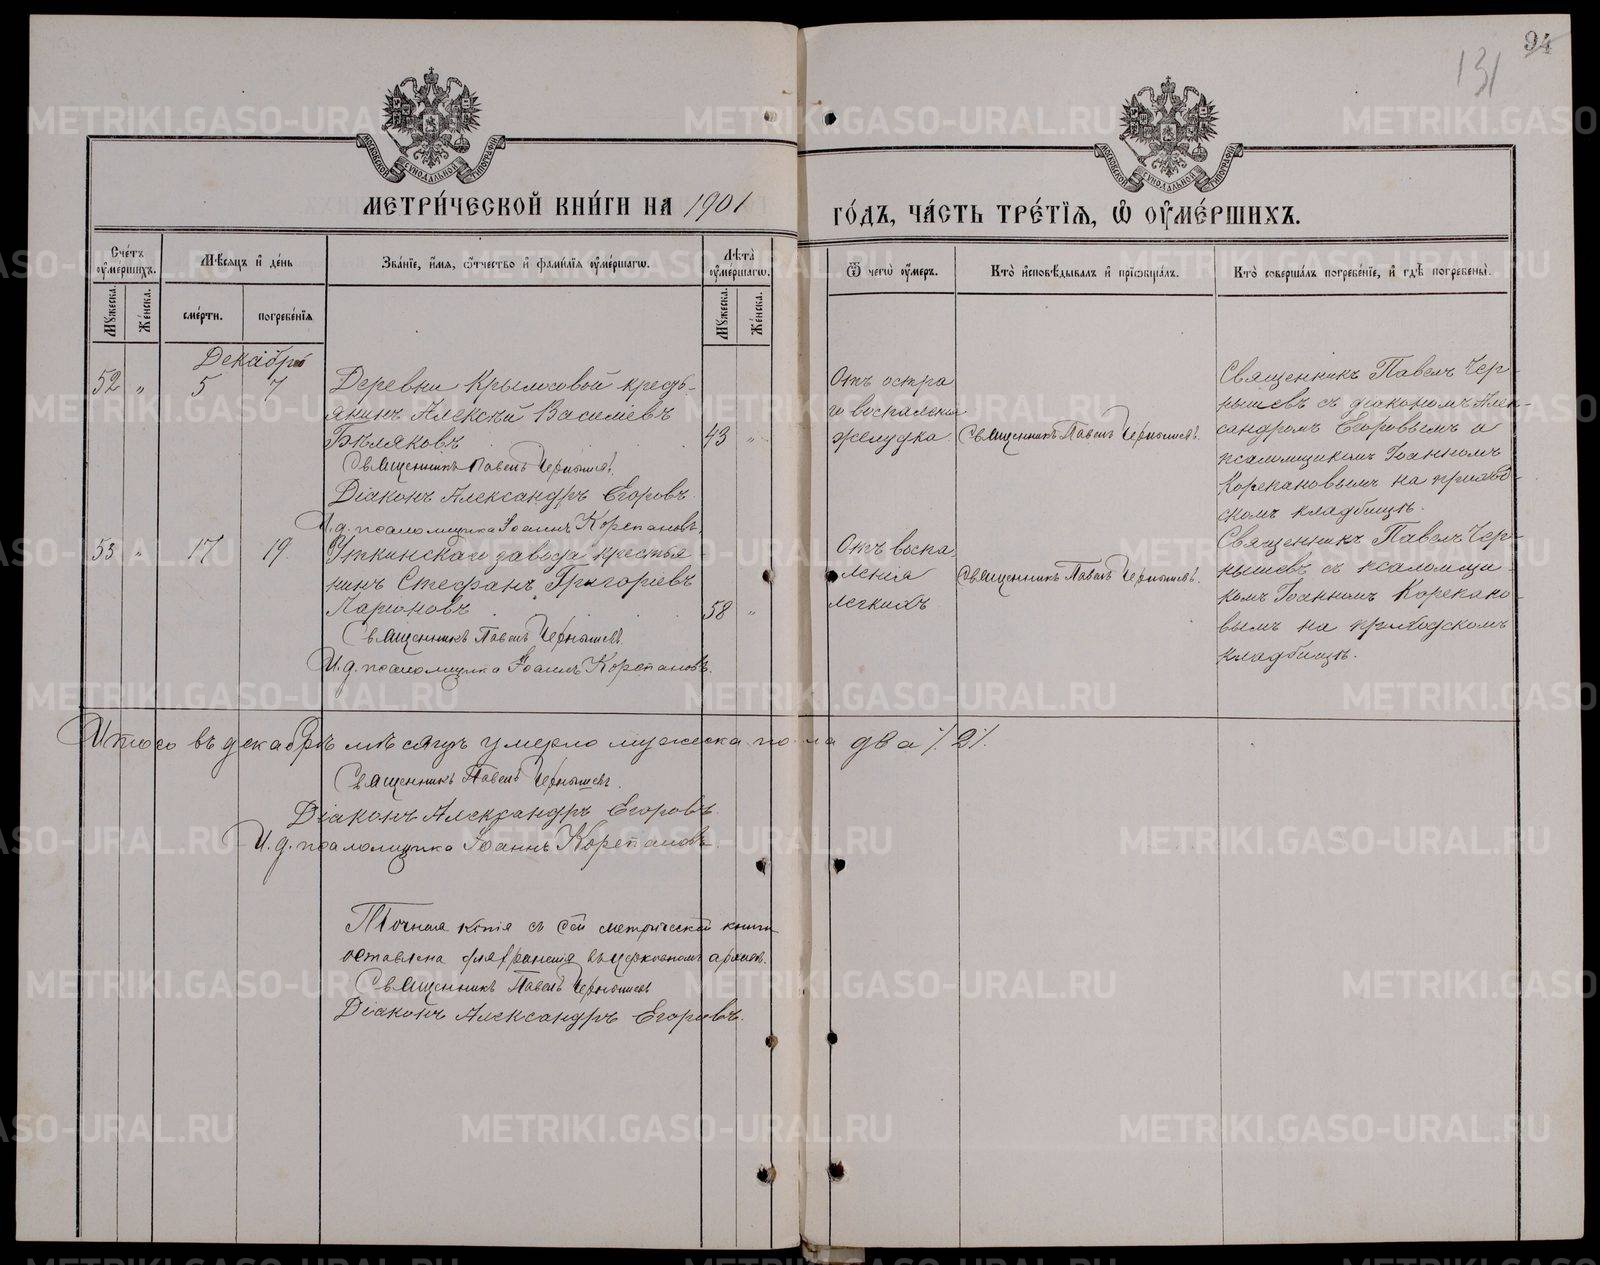 94
131
МЕТРИ́ЧЕСКОЙ КНИ́ГИ НА 1901
ГО́ДЪ, ЧА́СТЬ ТРЕ́ТІѦ, Ѽ ОУМЕ́РШИХЪ.
МОСКОВСКОЙ СУНОДАЛЬНОЙ ТИПОГРАФІИ
МОСКОВСКОЙ СУНОДАЛЬНОЙ ТИПОГРАФІИ
Сче́тъ оуме́ршихъ.
Мѣ́сяцъ и де́нь
Зва́ніе, и́мя, ѻ́тчество и фами́лія оуме́ршагѡ.
Лѣта̀ оуме́ршагѡ.
Ѿ чегѡ̀ оу́меръ.
Кто̀ исповѣ́дывалъ и пріѡбща́лъ.
Кто̀ соверша́лъ погребе́ніе, и гдѣ̀ погребены̀.
Му́жеска.
Же́нска.
сме́рти.
погребе́нія
Му́жеска.
Же́нска.
Декабрь
52 " 5 7
Деревни Крылосовой кресть-
янинъ Алексѣй Василіевъ
Бѣляковъ 43 "
Священникъ Павелъ Чернышевъ.
Діаконъ Александръ Егоровъ.
И. д. псаломщика Іоаннъ Корепановъ.
Отъ остра
го воспаленія
желудка
Священникъ Павелъ Чернышевъ.
Священникъ Павелъ Чер-
нышевъ съ діакономъ Алек-
сандромъ Егоровымъ и
псаломщикомъ Іоанномъ
Корепановымъ на приход-
скомъ кладбищѣ.
53 " 17 19
Уткинскаго завода крестья
нинъ Стефанъ Григоріевъ
Ларіоновъ 58 "
Священникъ Павелъ Чернышевъ.
И. д. псаломщика Іоаннъ Корепановъ.
Отъ воспа
ленія
легкихъ
Священникъ Павелъ Чернышевъ.
Священникъ Павелъ Чер-
нышевъ съ псаломщи-
комъ Іоанномъ Корепано-
вымъ на приходскомъ
кладбищѣ.
Итого въ декабрѣ мѣсяцѣ умерло мужеска пола два /.2/.
Священникъ Павелъ Чернышевъ.
Діаконъ Александръ Егоровъ.
И. д. псаломщика Іоаннъ Корепановъ.
Точная копія съ сей метрической книги
оставлена для храненія въ церковномъ архивѣ.
Священникъ Павелъ Чернышевъ
Діаконъ Александръ Егоровъ.
METRIKI.GASO-URAL.RU